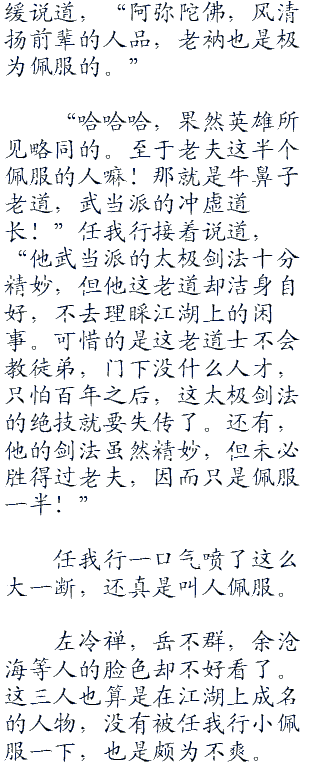 缓说道，“阿弥陀佛，风清
扬前辈的人品，老衲也是极
为佩服的。”
“哈哈哈，果然英雄所
见略同的。至于老夫这半个
佩服的人嘛！那就是牛鼻子
老道，武当派的冲虚道
长！”任我行接着说道，
“他武当派的太极剑法十分
精妙，但他这老道却洁身自
好，不去理睬江湖上的闲
事。可惜的是这老道士不会
教徒弟，门下没什么人才，
只怕百年之后，这太极剑法
的绝技就要失传了。还有，
他的剑法虽然精妙，但未必
胜得过老夫，因而只是佩服
一半！”
任我行一口气喷了这么
大一断，还真是叫人佩服。
左冷禅，岳不群，余沧
海等人的脸色却不好看了。
这三人也算是在江湖上成名
的人物，没有被任我行小佩
服一下，也是颇为不爽。